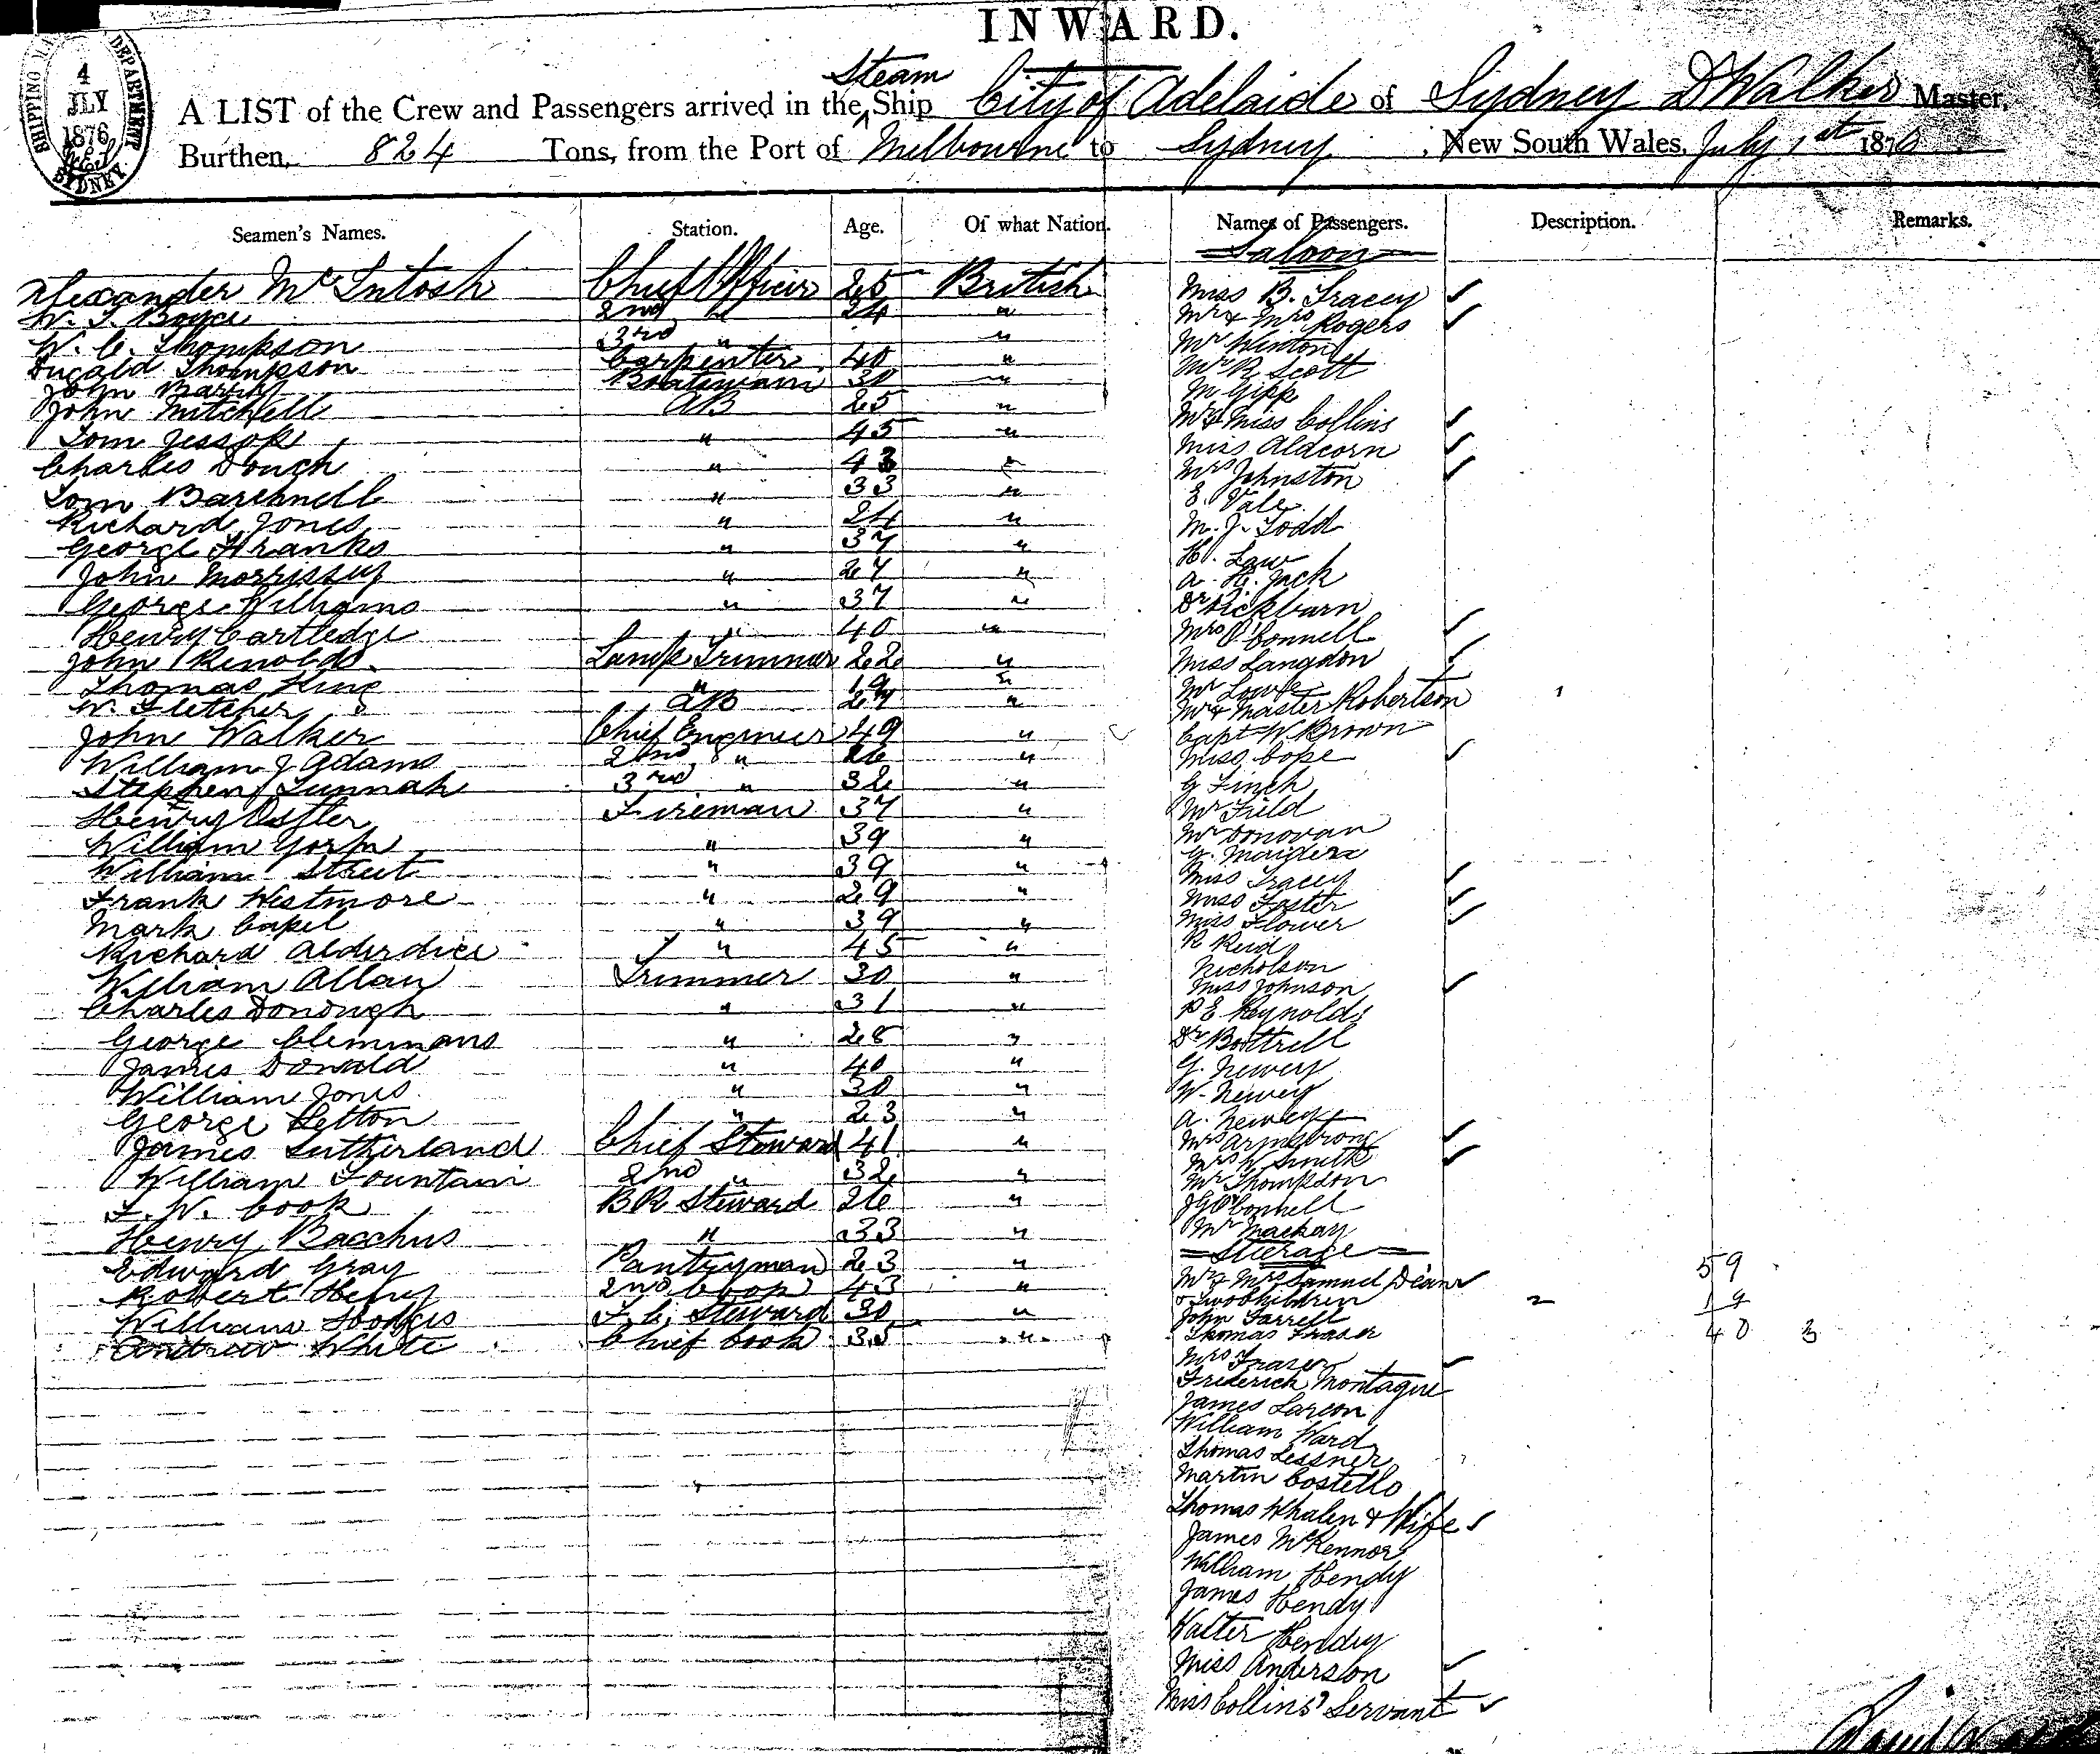 INWARD.
SHIPPING MA DEPARTMENT
4
JLY
1876
SYDNEY
Steam
A LIST of the Crew and Passengers arrived in the Ship City of Adelaide of Sydney D Walker Master,
Burthen, 824 Tons, from the Port of Melbourne to Sydney, New South Wales, July 1st 1876
Seamen's Names. Station. Age. Of what Nation. Names of Passengers. Description. Remarks.
Saloon
Alexander McIntosh Chief Officer 25 British Miss B. Tracey ✓
W. T. Boyce 2nd " 24 " Mr & Mrs Rogers ✓
W. C. Thompson 3rd " " Mr Winton
Dugald Thompson Carpenter 40 " Mr R Scott
John Boatswain 30 " M Gipp
John Mitchell AB 25 " Mr & Miss Collins ✓
Tom Jessop " 45 " Miss Aldcorn ✓
Charles Douch " 43 " Mrs Johnston ✓
Tom " 33 " E. Vale
Richard Jones " 24 " M. J. Todd
George Franks " 37 " H. Law
John Morrissey " 27 " A. H. Jack
George Williams " 37 " Dr
Henry Cartledge " 40 " Mrs O'Connell ✓
John Renolds Lamp Trimmer 22 " Miss Langdon ✓
Thomas King " 19 " Mr Lowe
W. Fletcher AB 27 " Mr & Master Robertson 1
John Walker Chief Engineer 49 " Capt W Brown
William J Adams 2nd " 26 " Miss Cope ✓
Stephen Tunnah 3rd " 32 " G Finch
Henry Fireman 37 " Mr Field
William York " 39 " Mr Donovan
William Street " 39 " G. Maiden
Frank Westmore " 29 " Miss Tracey ✓
Mark Capel " 39 " Miss Foster ✓
Richard Alderdice " 45 " Miss Flower ✓
William Allan Trimmer 30 " R Reid
Charles Donough " 31 " Nicholson
George Clemmans " 28 " Miss Johnson ✓
James Donald " 40 " P E Reynolds
William Jones " 30 " Dr Bottrell
George Hetton " 23 " G. Newey
James Sutherland Chief Steward 41 " W. Newey
William Fountain 2nd " 32 " A. Newey
F. W. Cook BR Steward 26 " Mrs Armstrong ✓
Henry Bacchus " 33 " Mrs W Smith ✓
Edward Gray Pantryman 23 " Mr Thompson
Robert Henry 2nd Cook 43 " J G O'Connell
William Hodges F. C. Steward 30 " Mr Mackay
Andrew White Chief Cook 35 "
Steerage
Mr & Mrs Samuel Dean ✓ 59
& Two Children 2 19
John Farrell 40 3
Thomas Fraser
Mrs Fraser ✓
Frederick Montague
James Larcon
William Ward
Thomas Lessner
Martin Costello
Thomas Whalen & Wife ✓
James McKennor
William Hendy
James Hendy
Walter Hendry
Miss Anderson ✓
Miss Collins' Servant ✓